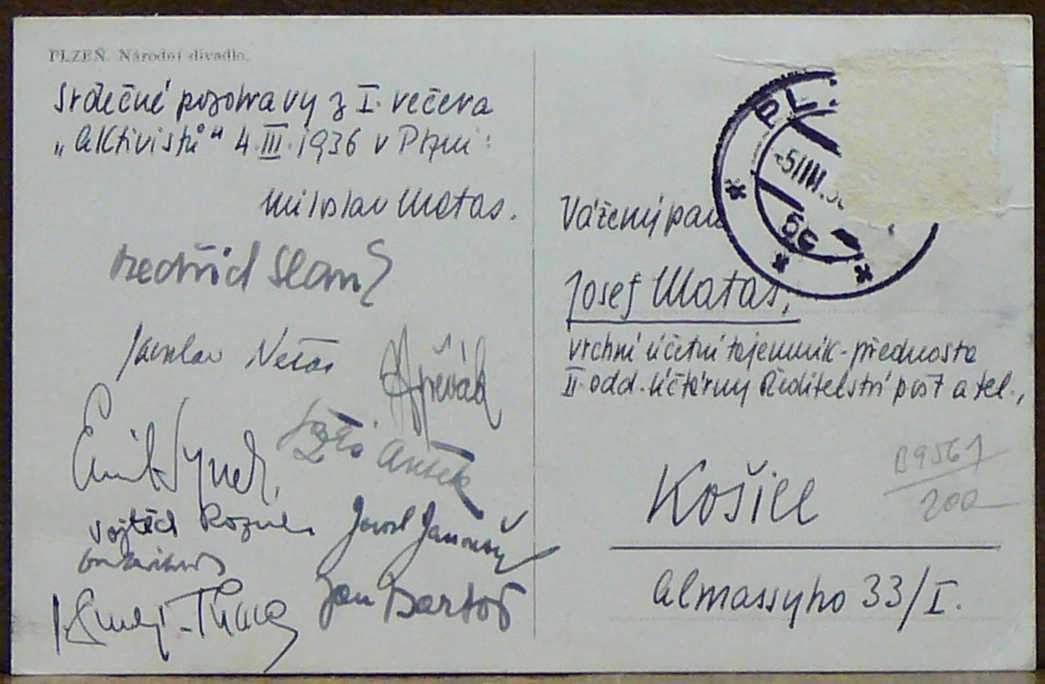 PLZEŇ. Národní divadlo.
Srdečné pozdravy z I. večera
„Aktivistů“ 4.III.1936 v Plzni:
Miloslav Matas.
Bedřich Slaný
Jaroslav Nečas
Emil Synek,
Vojtěch
Jan Bartoš
PL
-5.III.3
6c
Vážený pan
Josef Matas,
vrchní účetní tajemník-přednosta
II. odd. účtárny Ředitelství pošt a tel.,
Košice
Almassyho 33/I.
B9561
200